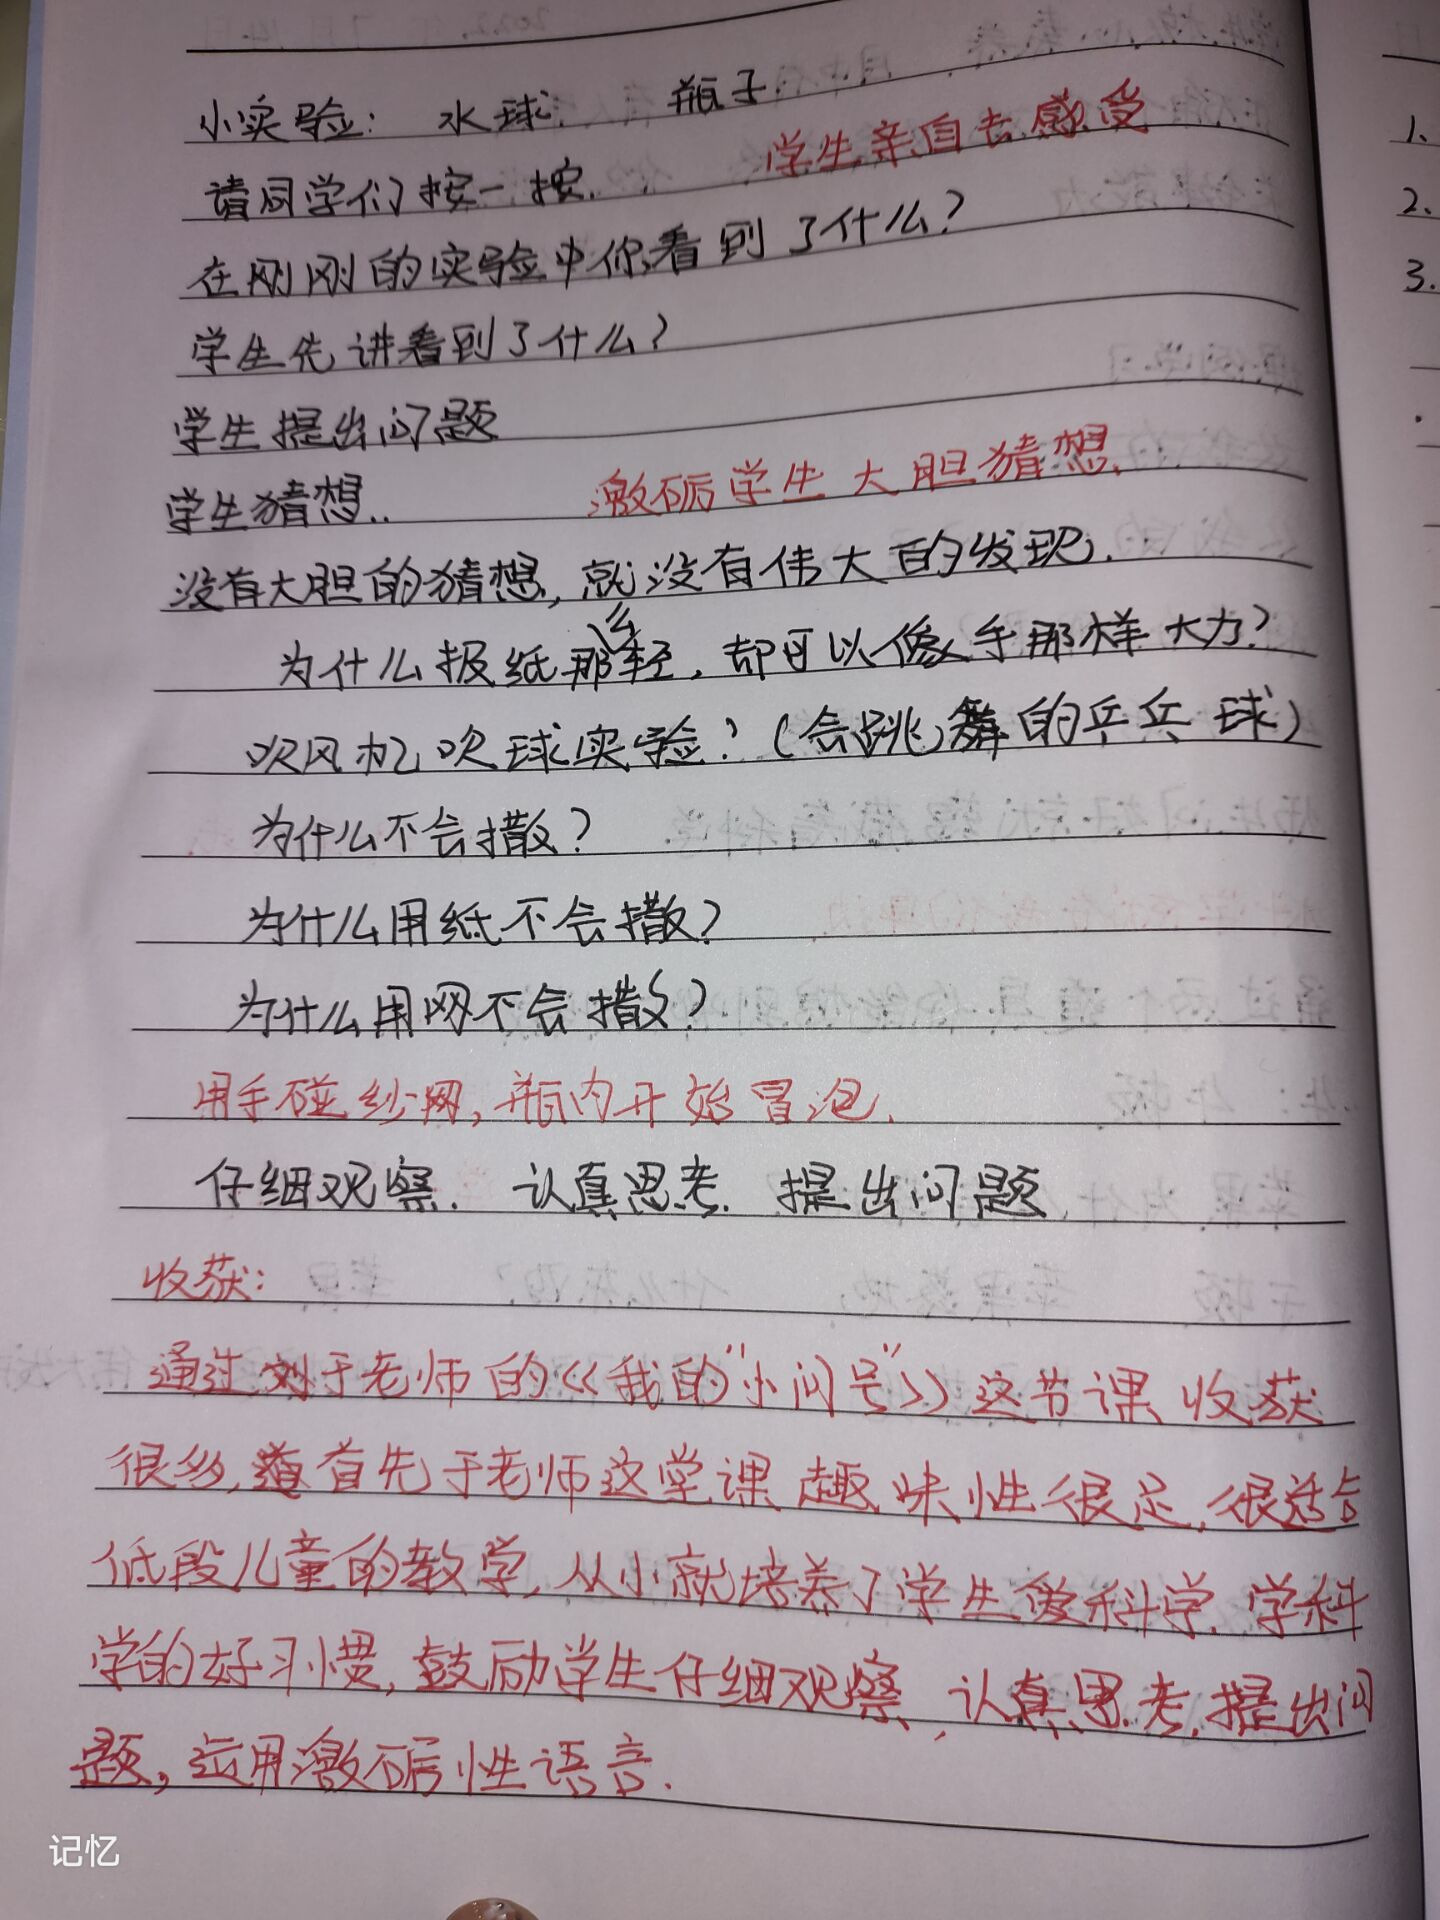 小实验： 水球 瓶子
请同学们按一按. 学生亲自去感受
在刚刚的实验中你看到了什么？
学生先讲看到了什么？
学生提出问题
学生猜想.. 激砺学生大胆猜想.
没有大胆的猜想，就没有伟大的发现.
为什么报纸那么轻，却可以像手那样大力？
吹风机吹球实验？（会跳舞的乒乓球）
为什么不会撒？
为什么用纸不会撒？
为什么用网不会撒？
用手碰纱网，瓶内开始冒泡.
仔细观察. 认真思考. 提出问题
收获：
通过刘于老师的《我的“小问号”》这节课收获
很多，首先于老师这堂课趣味性很足，很适合
低段儿童的教学，从小就培养了学生爱科学. 学科
学的好习惯，鼓励学生仔细观察，认真思考，提出问
题，运用激砺性语言.
1.
2.
3.
记忆